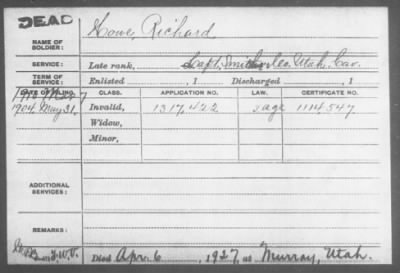 DEAD
NAME OF SOLDIER: Howe, Richard
SERVICE: Late rank, Capt. Smith's Co. Utah Cav.
TERM OF SERVICE: Enlisted , 1 Discharged , 1
DATE OF FILING. CLASS. APPLICATION NO. LAW. CERTIFICATE NO.
1904, May 31, Invalid, 1317,422 1114,547
Widow,
Minor,
ADDITIONAL SERVICES:
REMARKS:
I.W.V. Died Apr. 6, 1927, at Murray, Utah.